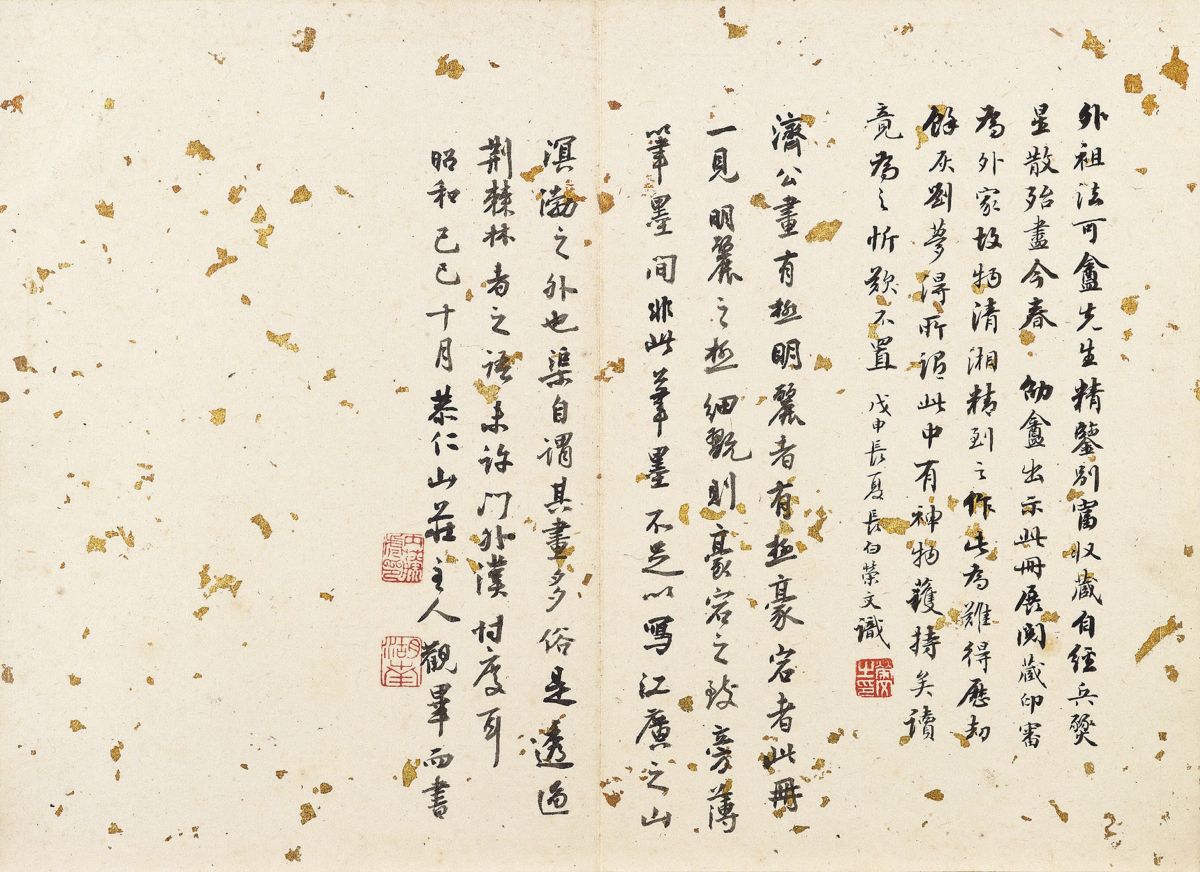 外祖法可盦先生精鑒别富收藏自經兵燹
星散殆盡今春劬盦出示此冊展閱藏印審
為外家故物清湘精到之作此為難得歷劫
餘灰劉夢得所謂此中有神物護持矣讀
竟為之忻歎不置 戊申長夏長白榮文識
濟公畫有極明麗者有極豪宕者此冊
一見明麗之極細翫則豪宕之致旁薄
筆墨間非此筆墨不足以寫江廣之山
溟渤之外也渠自謂其畫多俗是透過
荆棘林者之語未許門外漢忖度耳
昭和己巳十月恭仁山莊主人觀畢而書
内藤虎印
湖南